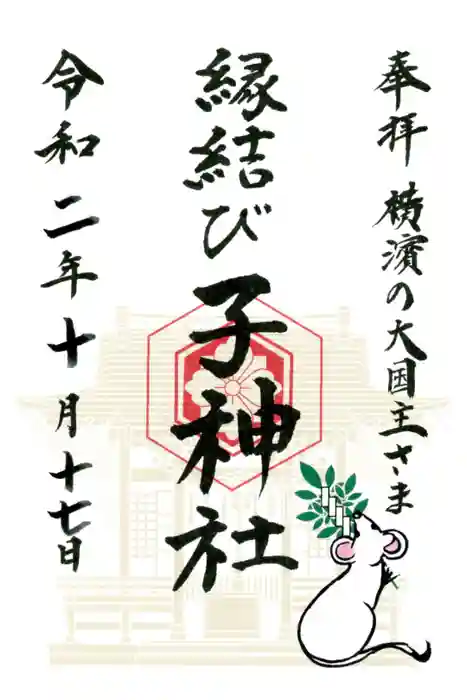 奉拝 横濱の大国主さま
縁結び子神社
令和二年十月十七日